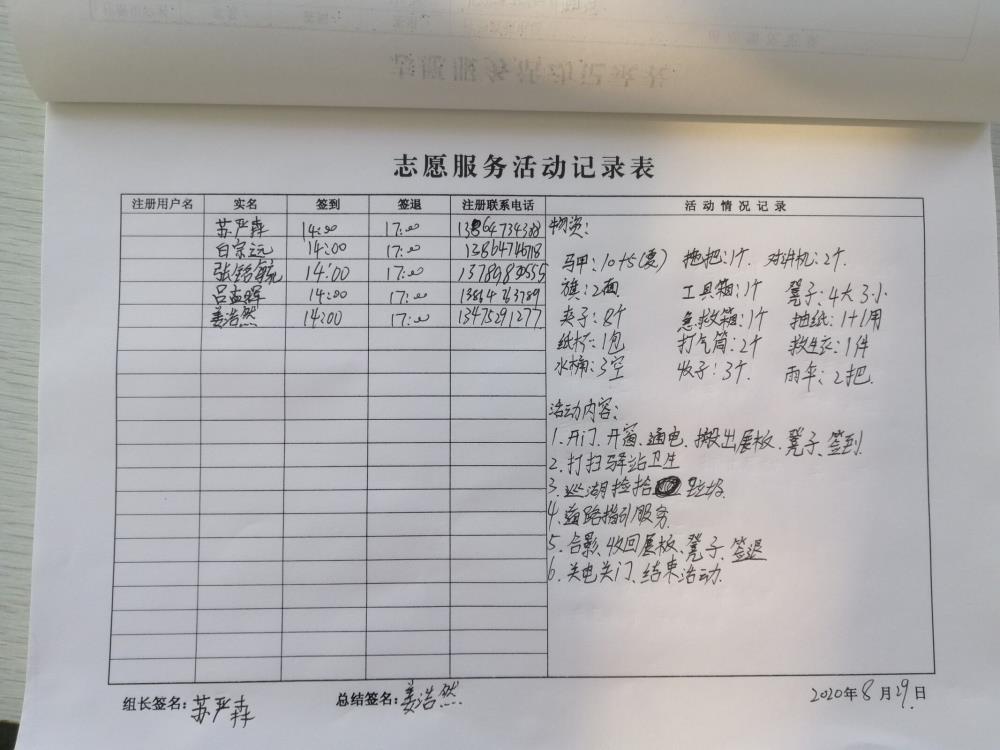 志愿服务活动记录表
注册用户名 实名 签到 签退 注册联系电话 活动情况记录
苏严森 14:00 17:00
白宗远 14:00 17:00
14:00 17:00
吕孟晖 14:00 17:00
姜浩然 14:00 17:00 13475291277
物资:
马甲:10+5(夏) 拖把:1个. 对讲机:2个.
旗:2面 工具箱:1个 凳子:4大3小
夹子:8个 急救箱:1个 抽纸:1+1用
纸杯:1包 打气筒:2个 救生衣:1件
水桶:3空 收子:3个. 雨伞:2把.
活动内容:
1.开门、开窗、通电、搬出展板、凳子、签到.
2.打扫驿站卫生
3.巡湖捡拾垃圾.
4.道路指引服务.
5.合影、收回展板、凳子、签退
6.关电关门、结束活动.
组长签名:苏严森 总结签名:姜浩然 2020年8月29日